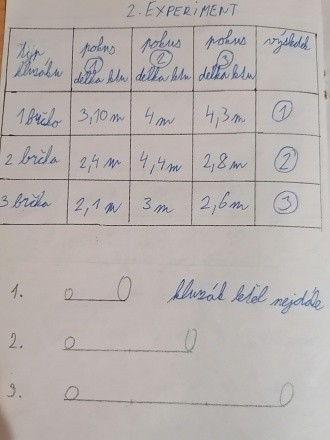 2. EXPERIMENT
typ kluzáku | pokus 1 délka letu | pokus 2 délka letu | pokus 3 délka letu | výsledek
1 brčko | 3,10 m | 4 m | 4,3 m | 1
2 brčka | 2,4 m | 4,4 m | 2,8 m | 2
3 brčka | 2,1 m | 3 m | 2,6 m | 3
1. kluzák letěl nejdále
2.
3.